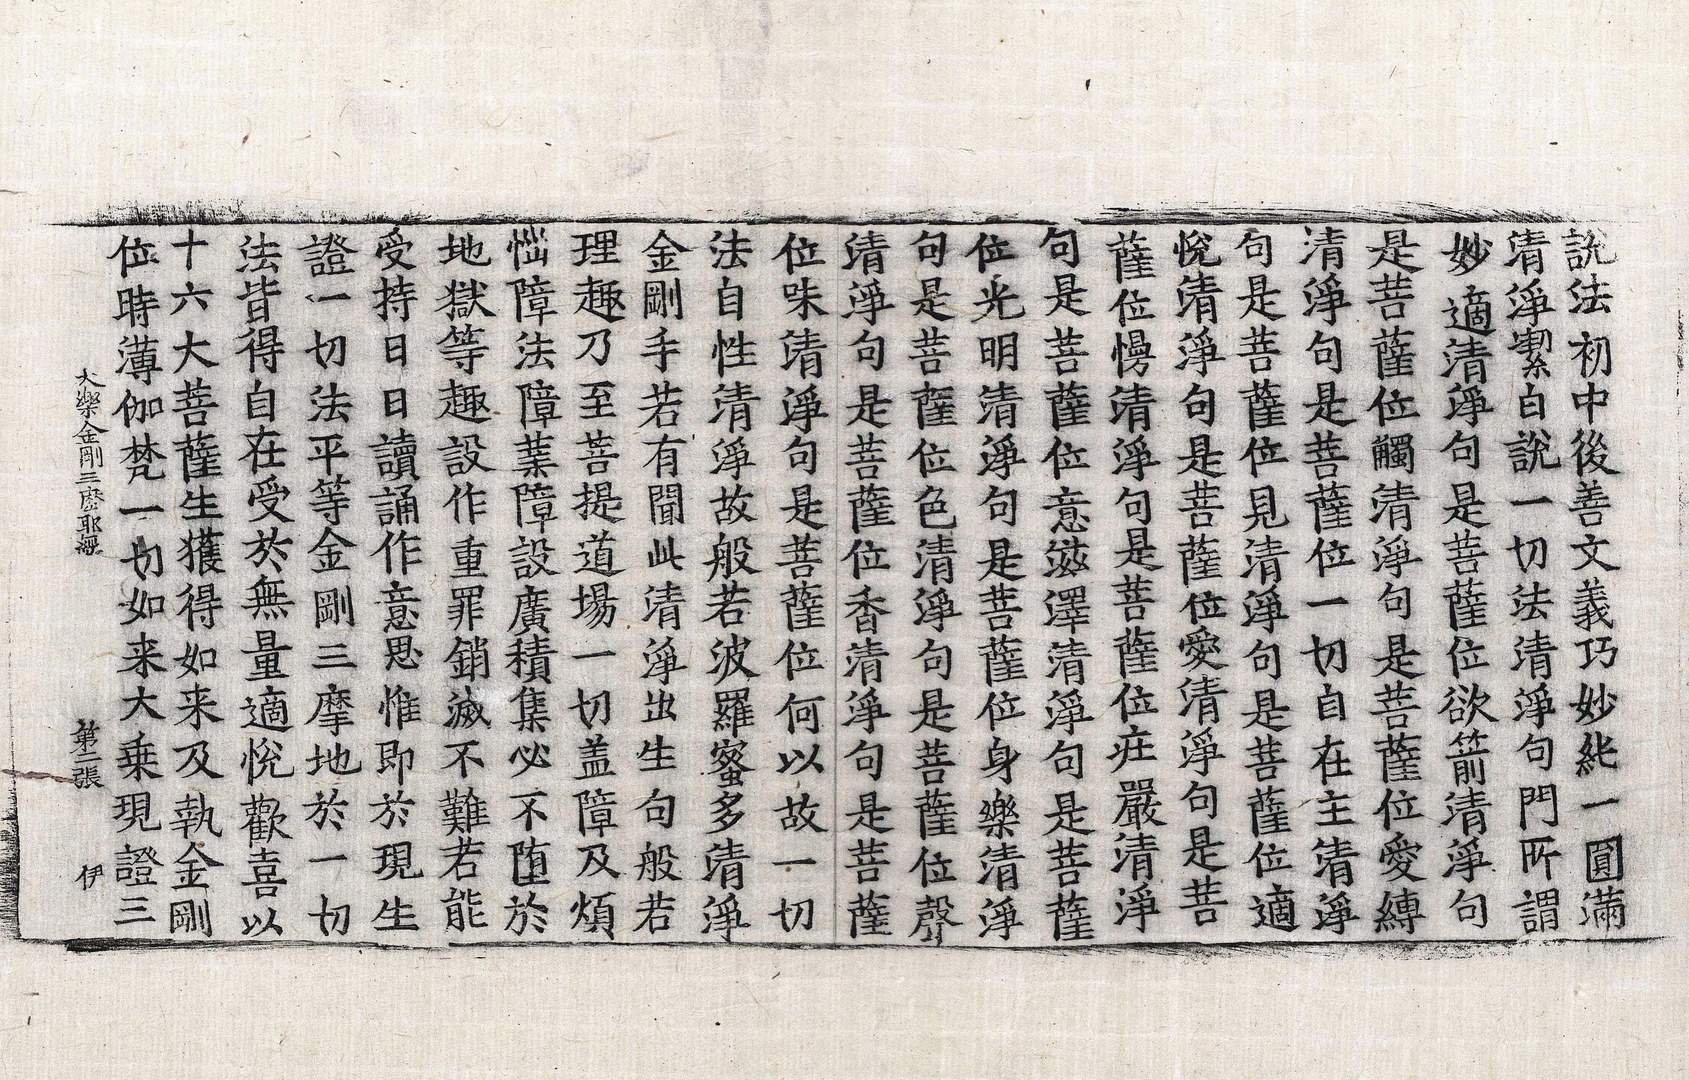 說法初中後善文義巧妙純一圓滿
清淨潔白說一切法清淨句門所謂
妙適清淨句是菩薩位欲箭清淨句
是菩薩位觸清淨句是菩薩位愛縛
清淨句是菩薩位一切自在主清淨
句是菩薩位見清淨句是菩薩位適
悅清淨句是菩薩位愛清淨句是菩
薩位慢清淨句是菩薩位庄嚴清淨
句是菩薩位意滋澤清淨句是菩薩
位光明清淨句是菩薩位身樂清淨
句是菩薩位色清淨句是菩薩位聲
清淨句是菩薩位香清淨句是菩薩
位味清淨句是菩薩位何以故一切
法自性清淨故般若波羅蜜多清淨
金剛手若有聞此清淨出生句般若
理趣乃至菩提道場一切盖障及煩
惱障法障業障設廣積集必不墮於
地獄等趣設作重罪銷滅不難若能
受持日日讀誦作意思惟即於現生
證一切法平等金剛三摩地於一切
法皆得自在受於無量適悅歡喜以
十六大菩薩生獲得如来及執金剛
位時薄伽梵一切如来大乗現證三
大樂金剛三摩耶經 第二張 伊